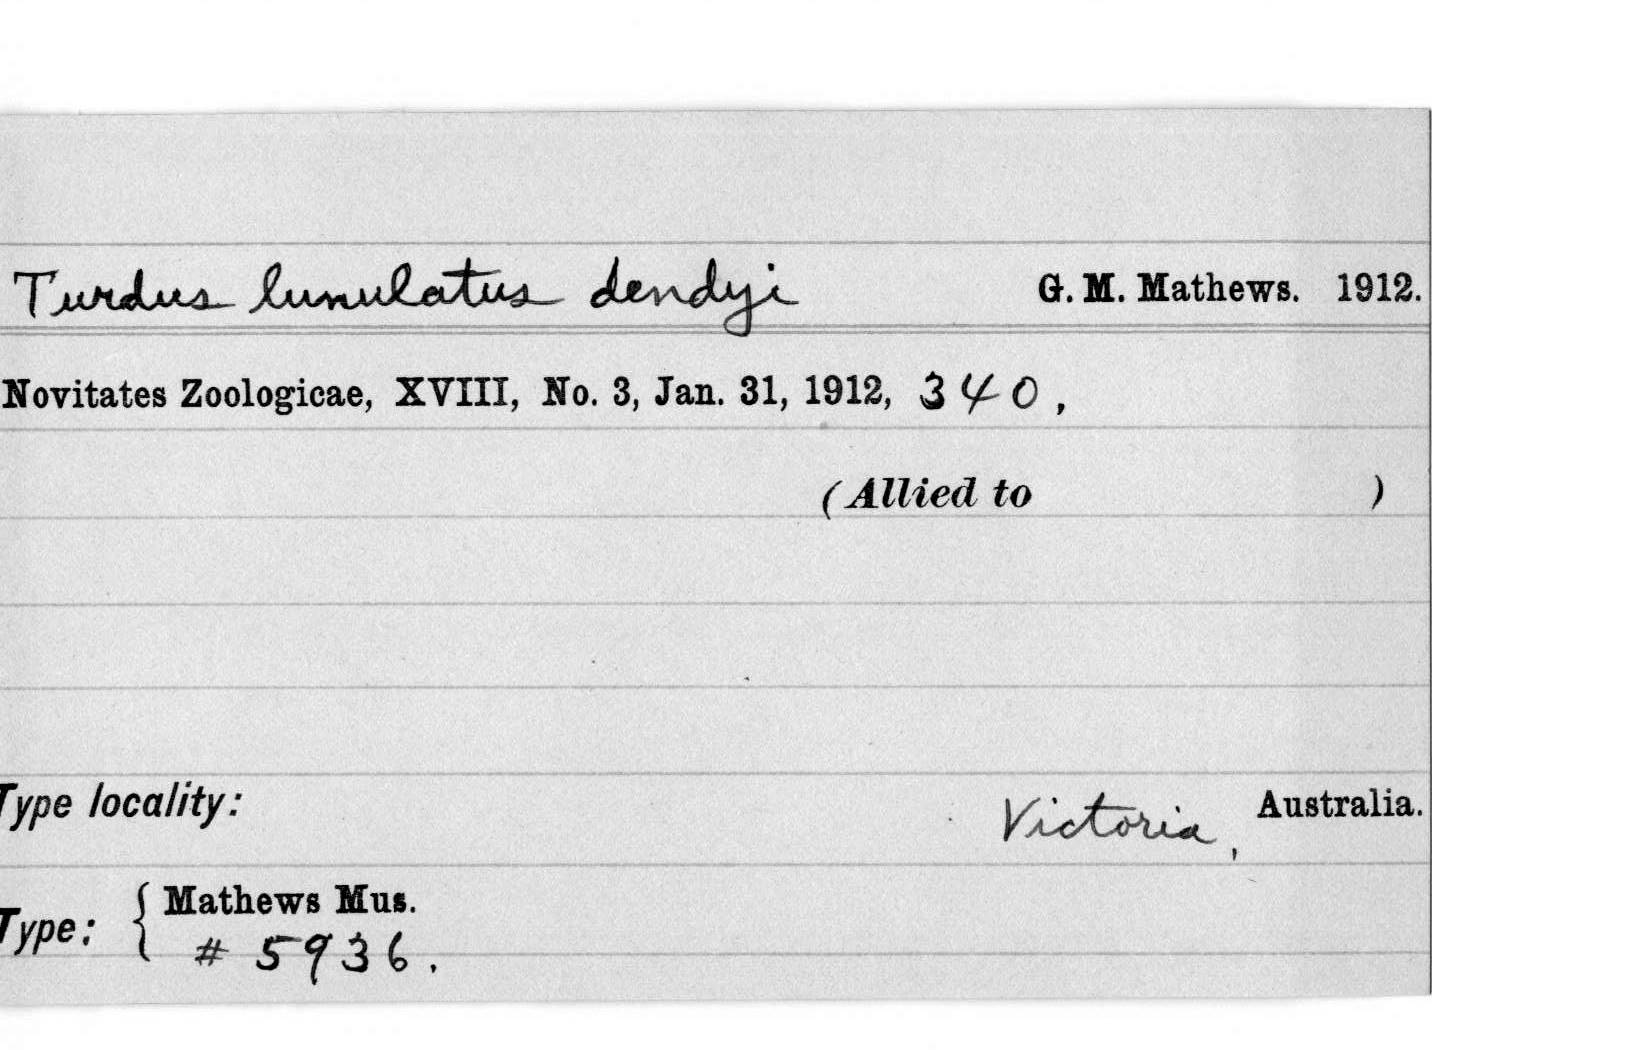 Turdus lunulatus dendyi G. M. Mathews. 1912.
Novitates Zoologicae, XVIII, No. 3, Jan. 31, 1912, 340,
(Allied to )
Type locality: Victoria, Australia.
Type: { Mathews Mus.
# 5936.